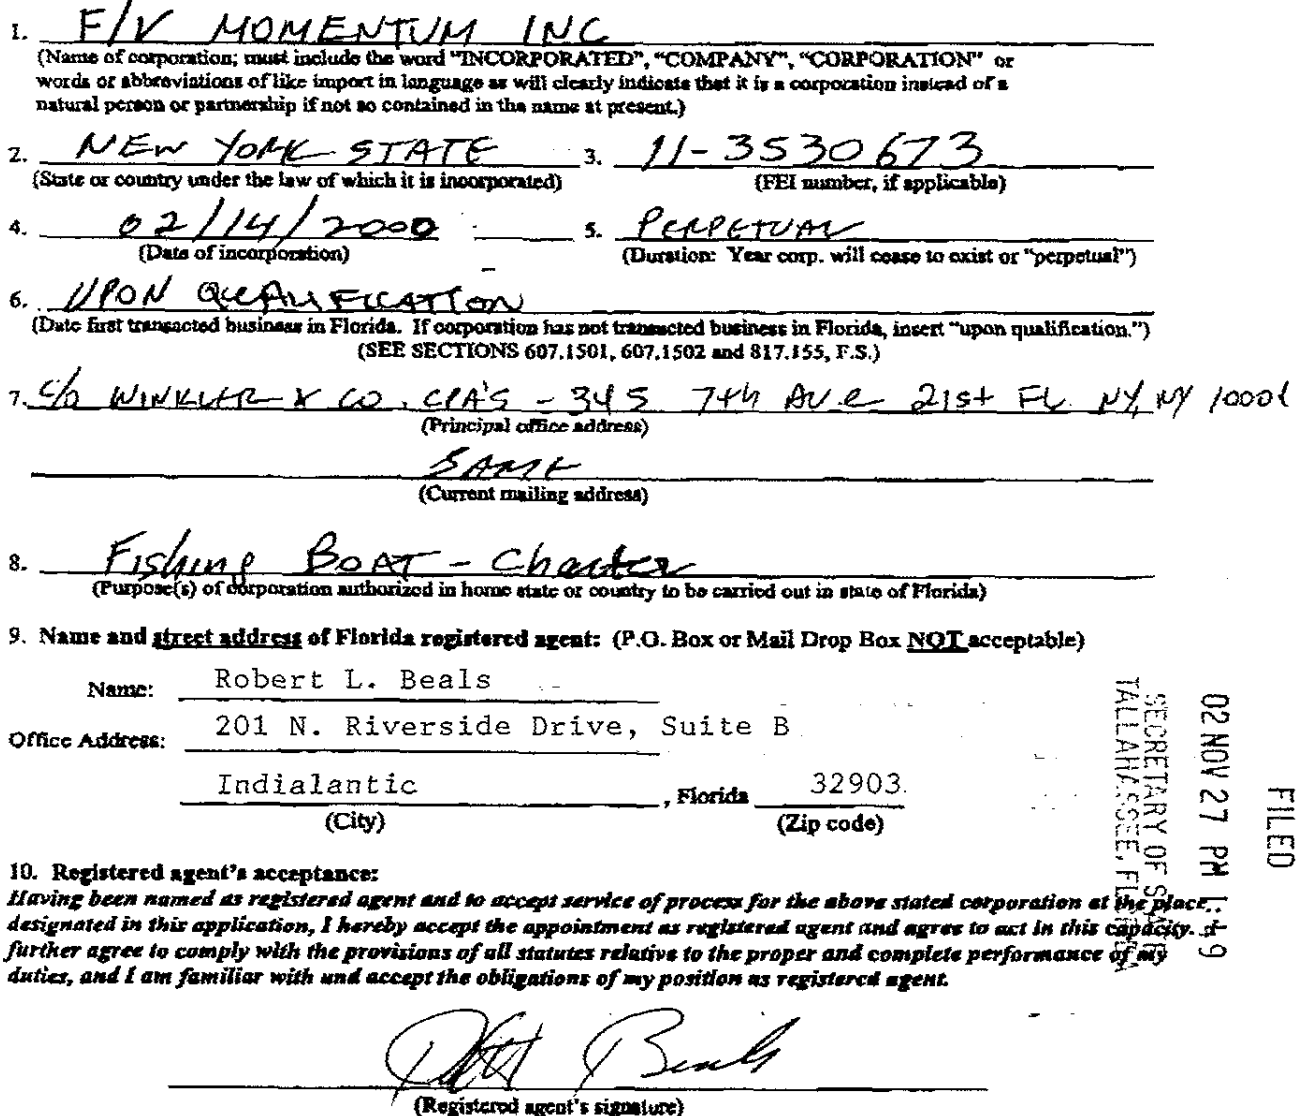 1. F/V MOMENTUM INC
(Name of corporation; must include the word "INCORPORATED", "COMPANY", "CORPORATION" or
words or abbreviations of like import in language as will clearly indicate that it is a corporation instead of a
natural person or partnership if not so contained in the name at present.)
2. NEW YORK STATE 3. 11-3530673
(State or country under the law of which it is incorporated) (FEI number, if applicable)
4. 02/14/2000 5. PERPETUAL
(Date of incorporation) (Duration: Year corp. will cease to exist or "perpetual")
6. UPON QUALIFICATION
(Date first transacted business in Florida. If corporation has not transacted business in Florida, insert "upon qualification.")
(SEE SECTIONS 607.1501, 607.1502 and 817.155, F.S.)
7. C/O WINKLER & CO. CPA'S - 345 7th Ave 21st FL NY, NY 10001
(Principal office address)
SAME
(Current mailing address)
8. Fishing BOAT - Charter
(Purpose(s) of corporation authorized in home state or country to be carried out in state of Florida)
9. Name and street address of Florida registered agent: (P.O. Box or Mail Drop Box NOT acceptable)
Name: Robert L. Beals
Office Address: 201 N. Riverside Drive, Suite B
Indialantic, Florida 32903
(City) (Zip code)
10. Registered agent's acceptance:
Having been named as registered agent and to accept service of process for the above stated corporation at the place
designated in this application, I hereby accept the appointment as registered agent and agree to act in this capacity. I
further agree to comply with the provisions of all statutes relative to the proper and complete performance of my
duties, and I am familiar with and accept the obligations of my position as registered agent.
Beals
(Registered agent's signature)
FILED
02 NOV 27 PM
SECRETARY OF
TALLAHASSEE,